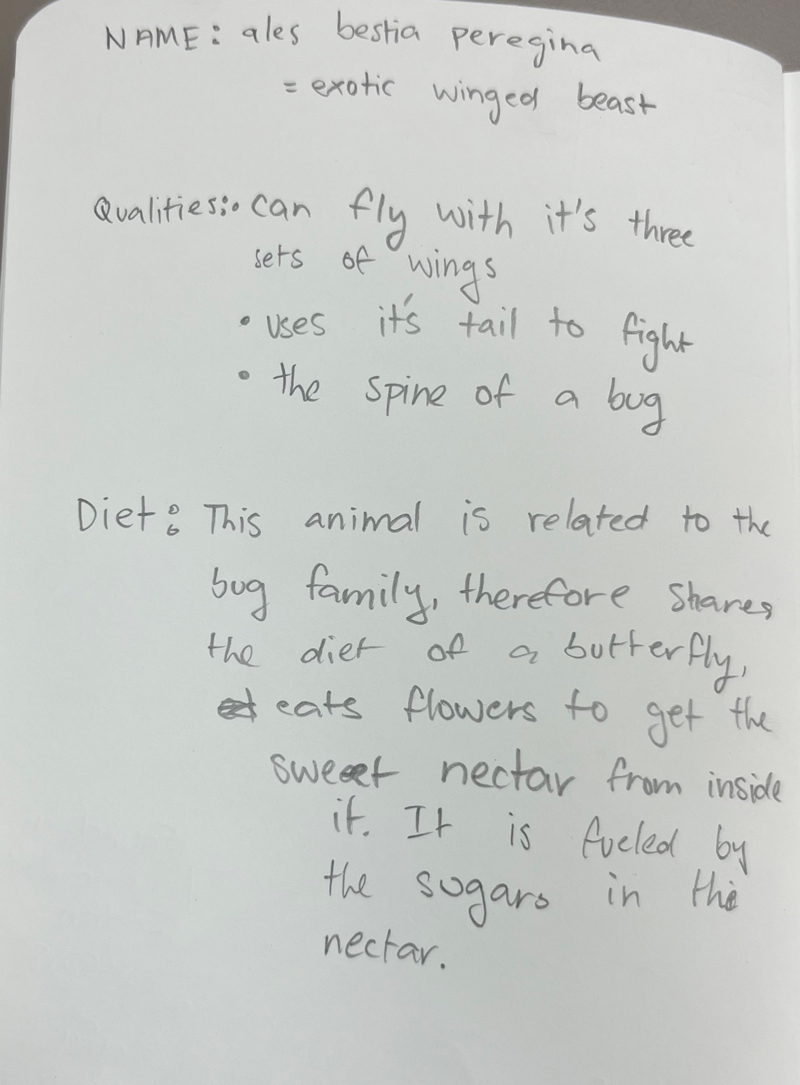 NAME: ales bestia peregina
= exotic winged beast
Qualities: • can fly with it's three
sets of wings
• uses it's tail to fight
• the spine of a bug
Diet: This animal is related to the
bug family, therefore shares
the diet of a butterfly,
eats flowers to get the
sweet nectar from inside
it. It is fueled by
the sugars in the
nectar.